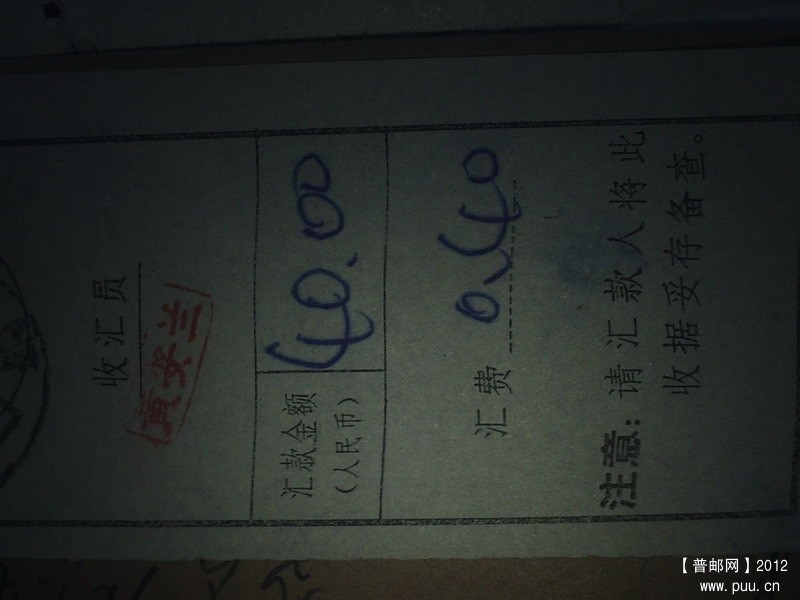 收汇员
黄安兰
汇款金额
（人民币）
40.00
汇费 0.40
注意：请汇款人将此
收据妥存备查。
【普邮网】2012
www.puu.cn